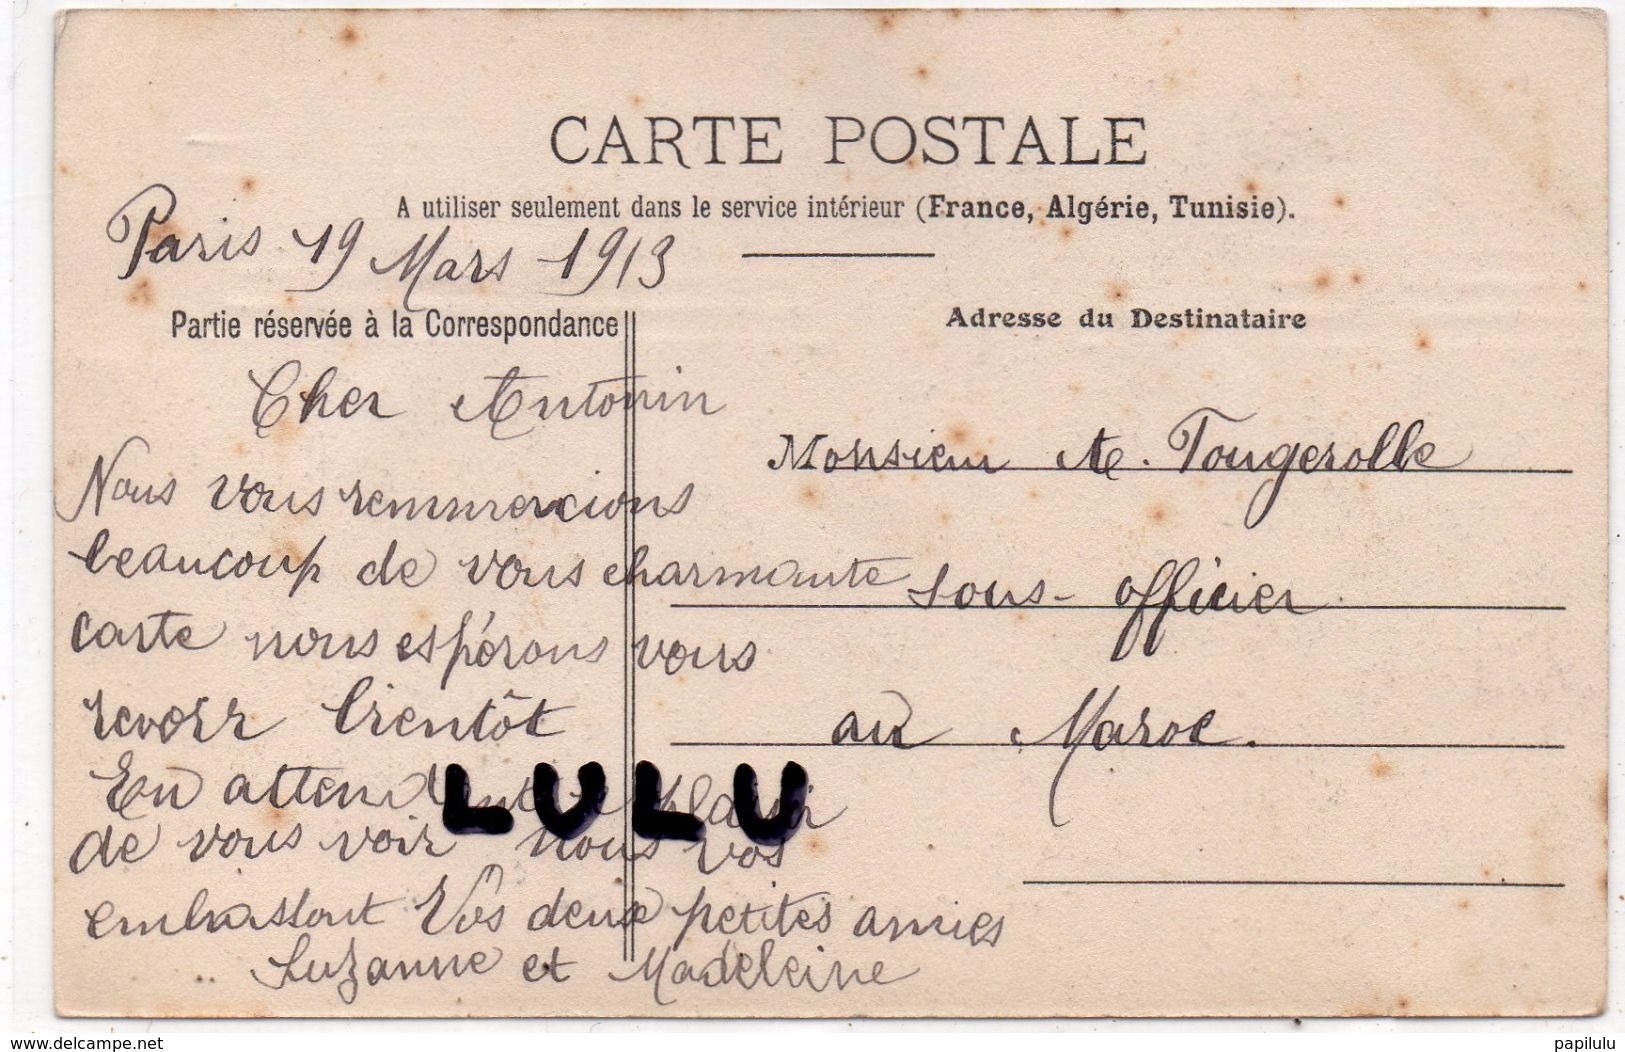 CARTE POSTALE
A utiliser seulement dans le service intérieur (France, Algérie, Tunisie).
Paris 19 Mars 1913
Partie réservée à la Correspondance
Adresse du Destinataire
Cher Antonin
Nous vous remmercions
beaucoup de vous charmante
carte nous espérons vous
revoir bientôt
En attendant le plaisir
de vous voir nous vos
embrassont Vos deux petites amies
Suzanne et Madeleine
Monsieur A. Fougerolle
sous-officier
au Maroc.
LULU
www.delcampe.net
papilulu